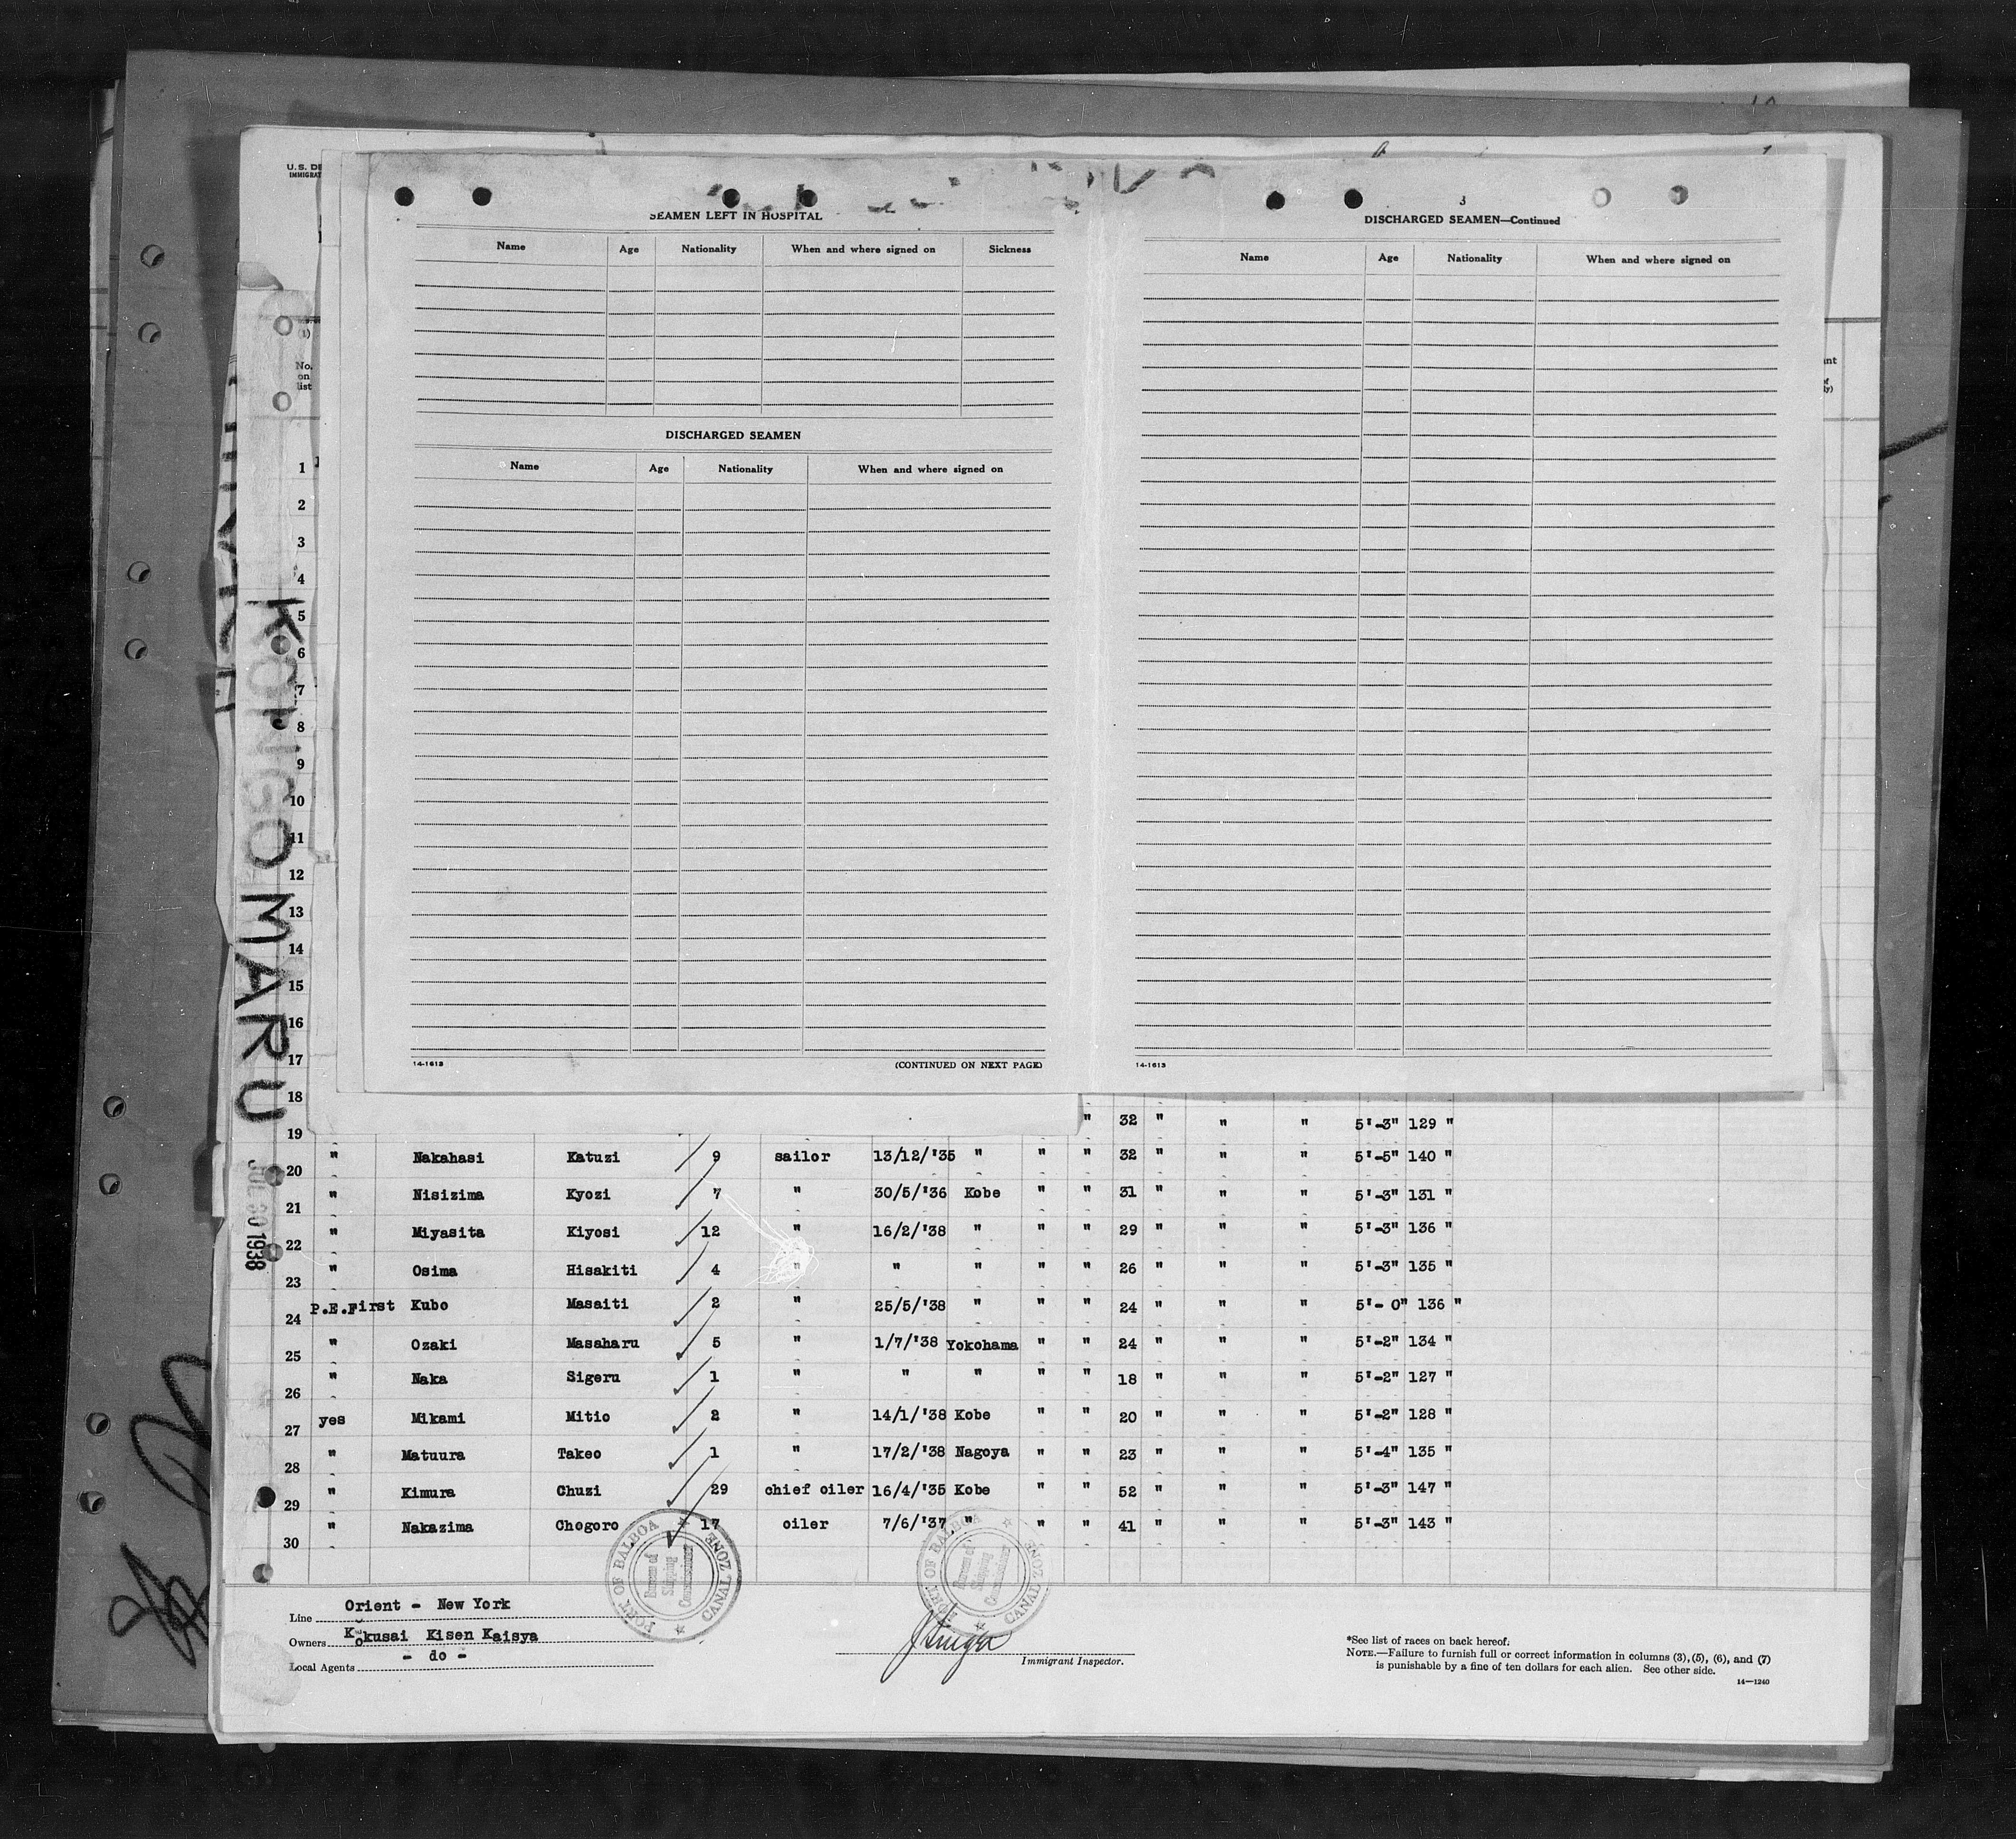 U.S. DE
IMMIGRAT
SEAMEN LEFT IN HOSPITAL
Name Age Nationality When and where signed on Sickness
DISCHARGED SEAMEN
Name Age Nationality When and where signed on
14-1613 (CONTINUED ON NEXT PAGE)
3
DISCHARGED SEAMEN—Continued
Name Age Nationality When and where signed on
14-1613
(1)
No.
on
list
1
2
3
4
5
6
7
8
9
10
11
12
13
14
15
16
17
18
KONGO MARU
JUL 30 1938
19 " 32 " " " 5'-3" 129 "
20 " Nakahasi Katuzi 9 sailor 13/12/'35 " " " 32 " " " 5'-5" 140 "
21 " Nisizima Kyozi 7 " 30/5/'36 Kobe " " 31 " " " 5'-3" 131 "
22 " Miyasita Kiyosi 12 " 16/2/'38 " " " 29 " " " 5'-3" 136 "
23 " Osima Hisakiti 4 " " " " " 26 " " " 5'-3" 135 "
24 P.E.First Kubo Masaiti 2 " 25/5/'38 " " " 24 " " " 5'- 0" 136 "
25 " Ozaki Masaharu 5 " 1/7/'38 Yokohama " " 24 " " " 5'-2" 134 "
26 " Naka Sigeru 1 " " " " " 18 " " " 5'-2" 127 "
27 yes Mikami Mitio 2 " 14/1/'38 Kobe " " 20 " " " 5'-2" 128 "
28 " Matuura Takeo 1 " 17/2/'38 Nagoya " " 23 " " " 5'-4" 135 "
29 " Kimura Chuzi 29 chief oiler 16/4/'35 Kobe " " 52 " " " 5'-3" 147 "
30 " Nakazima Chogoro 17 oiler 7/6/'37 " " " 41 " " " 5'-3" 143 "
PORT OF BALBOA
CANAL ZONE
Bureau of
Shipping
Commissioner
PORT OF BALBOA
CANAL ZONE
Bureau of
Shipping
Commissioner
Line Orient - New York
Owners Kokusai Kisen Kaisya
Local Agents - do -
Immigrant Inspector.
*See list of races on back hereof.
NOTE.—Failure to furnish full or correct information in columns (3), (5), (6), and (7)
is punishable by a fine of ten dollars for each alien. See other side.
14—1240